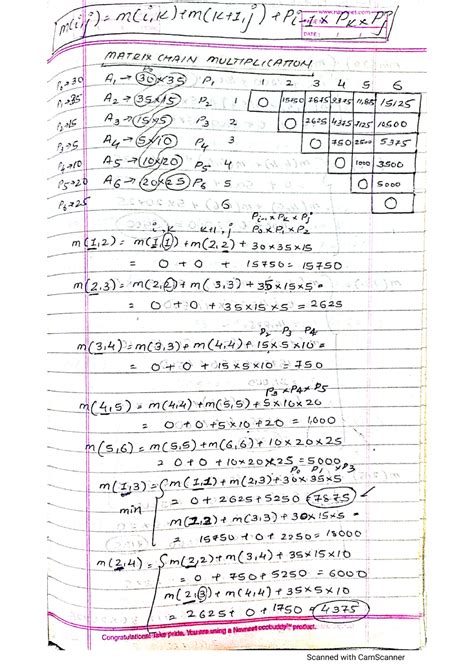 m(i,j) = m(i,k) + m(k+1,j) + Pi-1 × Pk × Pj
DATE:
MATRIX CHAIN MULTIPLICATION
P0→30 A1→ 30×35 P1 1 2 3 4 5 6
P1→35 A2→ 35×15 P2 1 0 15750 7875 9375 11,875 15125
P2→15 A3→ 15×5 P3 2 0 2625 4375 7125 10500
P3→5 A4→ 5×10 P4 3 0 750 2500 5375
P4→10 A5→ 10×20 P5 4 0 1000 3500
P5→20 A6→ 20×25 P6 5 0 5000
P6→25 6 0
i,k k+1,j Pi-1×Pk×Pj
P0×P1×P2
m(1,2) = m(1,1) + m(2,2) + 30×35×15
= 0 + 0 + 15750 = 15750
m(2,3) = m(2,2) + m(3,3) + 35×15×5 =
= 0 + 0 + 35×15×5 = 2625
P2 P3 P4
m(3,4) = m(3,3) + m(4,4) + 15×5×10 =
= 0 + 0 + 15×5×10 = 750
P3×P4×P5
m(4,5) = m(4,4) + m(5,5) + 5×10×20
= 0 + 0 + 5×10×20 = 1,000
m(5,6) = m(5,5) + m(6,6) + 10×20×25
= 0 + 0 + 10×20×25 = 5000
P0 P1 ×P3
m(1,3) = m(1,1) + m(2,3) + 30×35×5
min = 0 + 2625 + 5250 = 7875
m(1,2) + m(3,3) + 30×15×5 =
= 15750 + 0 + 2250 = 18000
m(2,4) = m(2,2) + m(3,4) + 35×15×10
= 0 + 750 + 5250 = 6000
m(2,3) + m(4,4) + 35×5×10
= 2625 + 0 + 1750 = 4375
Congratulations! Take pride, You are using a Navneet ecobuddy™ product.
Scanned with CamScanner